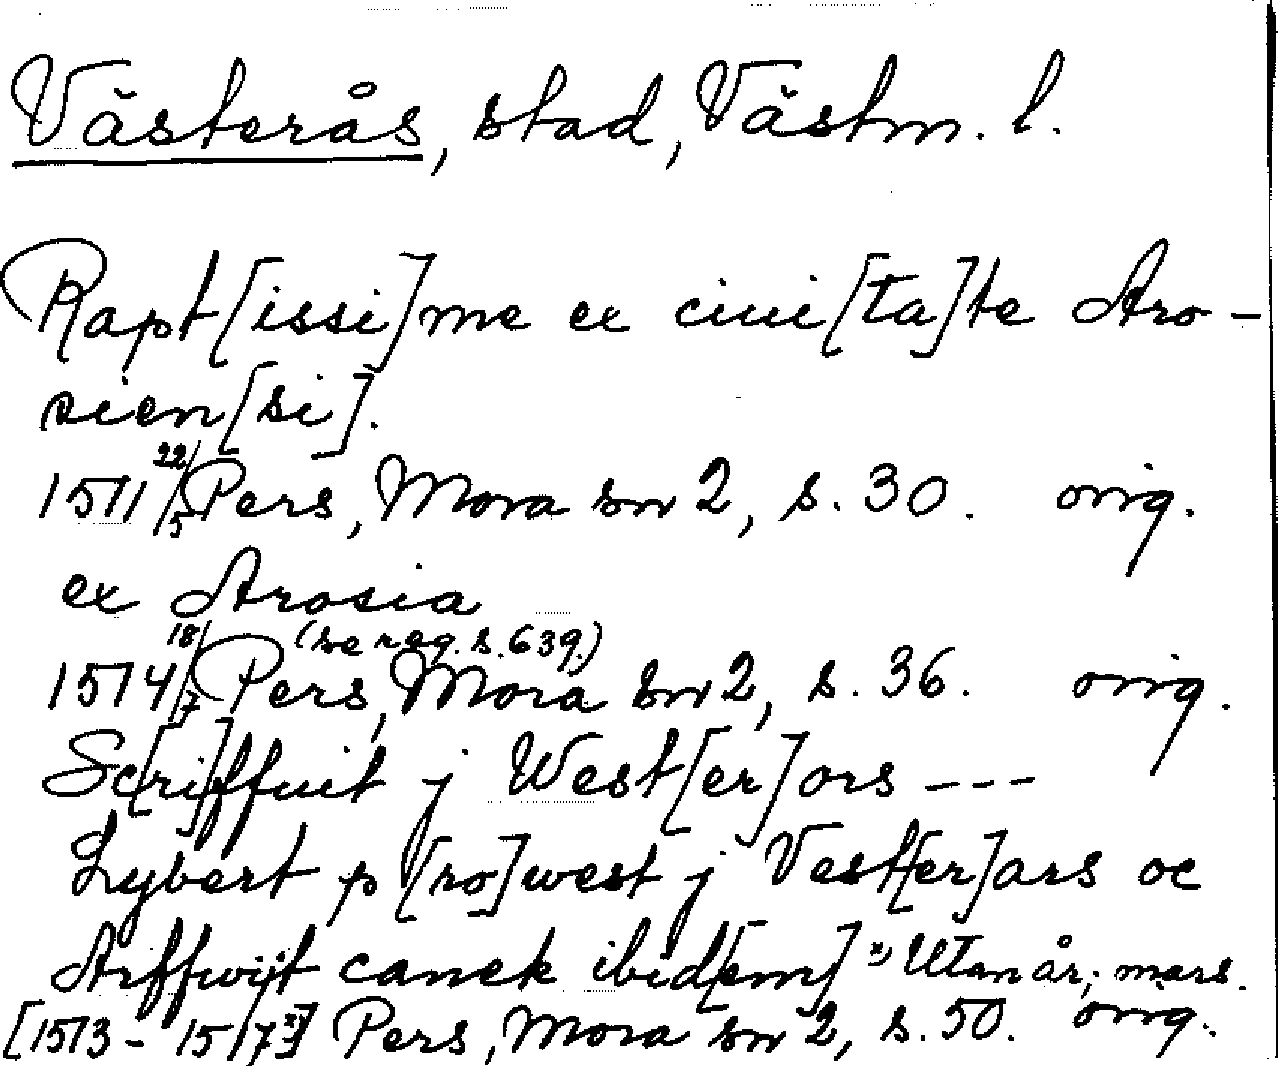 Västerås, stad, Västm. l.
Rapt[issi]me ex ciui[ta]te Aro-
sien[si].
1511 22/5 Pers, Mora sn 2, s. 30. orig.
ex Arosia
(se reg. s. 639.)
1514 18/7 Pers, Mora sn 2, s. 36. orig.
Sc[ri]ffuit j West[er]ors ---
Lybert p[ro]west j Vest[er]ars oc
Arffwijt canek ibid[em] x) Utan år; mars.
[1513 - 1517x)] Pers, Mora sn 2, s. 50. orig.